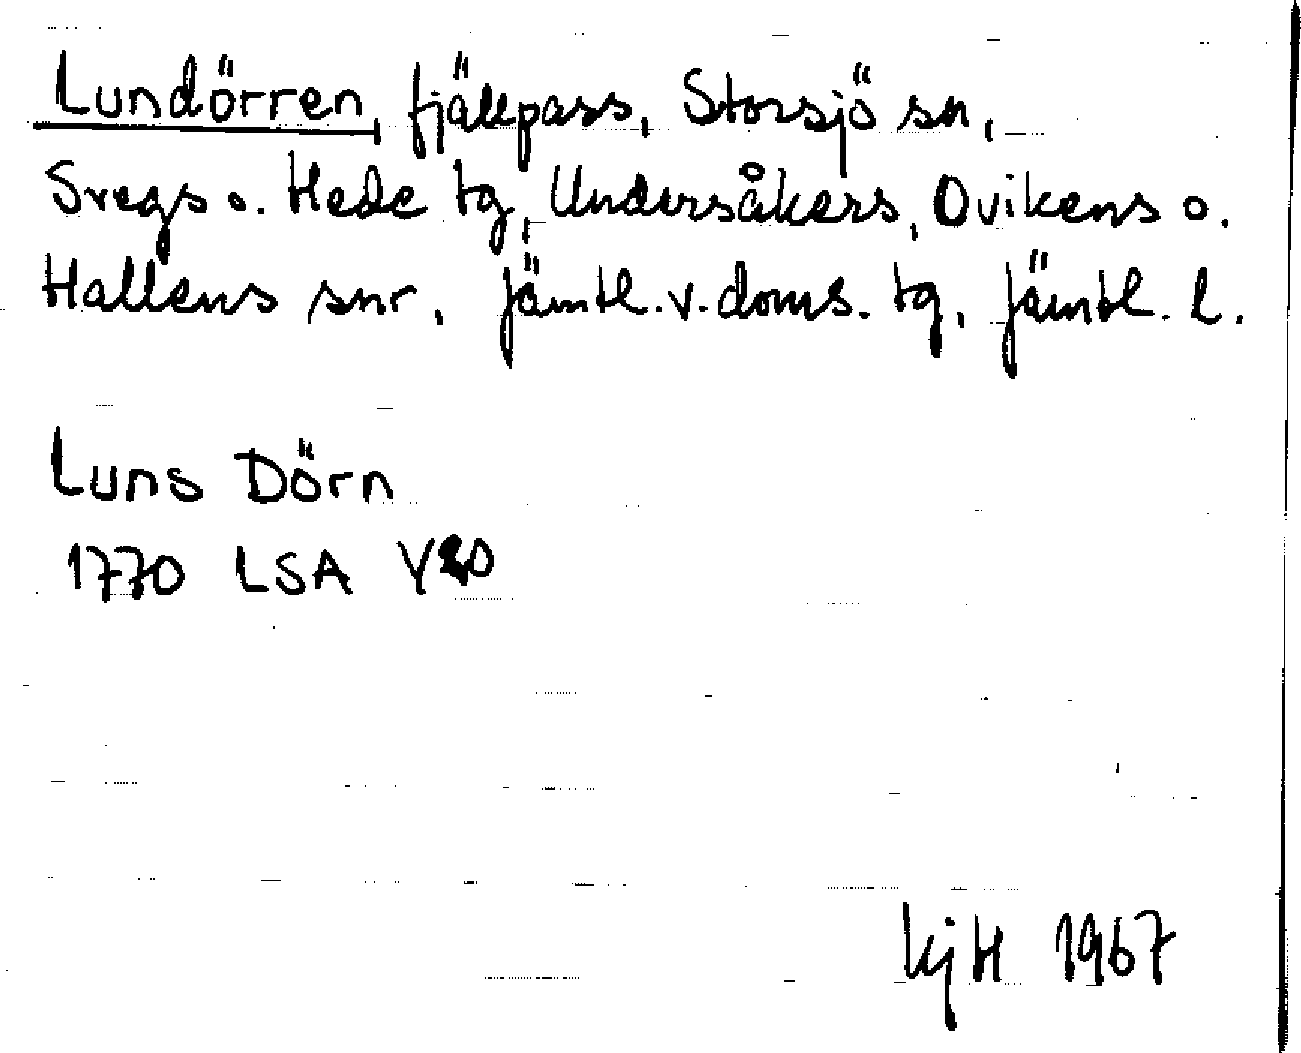 Lundörren, fjällpass, Storsjö sn,
Svegs o. Hede tg, Undersåkers, Ovikens o.
Hallens snr, Jämtl. v. doms. tg, Jämtl. l.
Luns Dörn
1770 LSA
KjH 1967